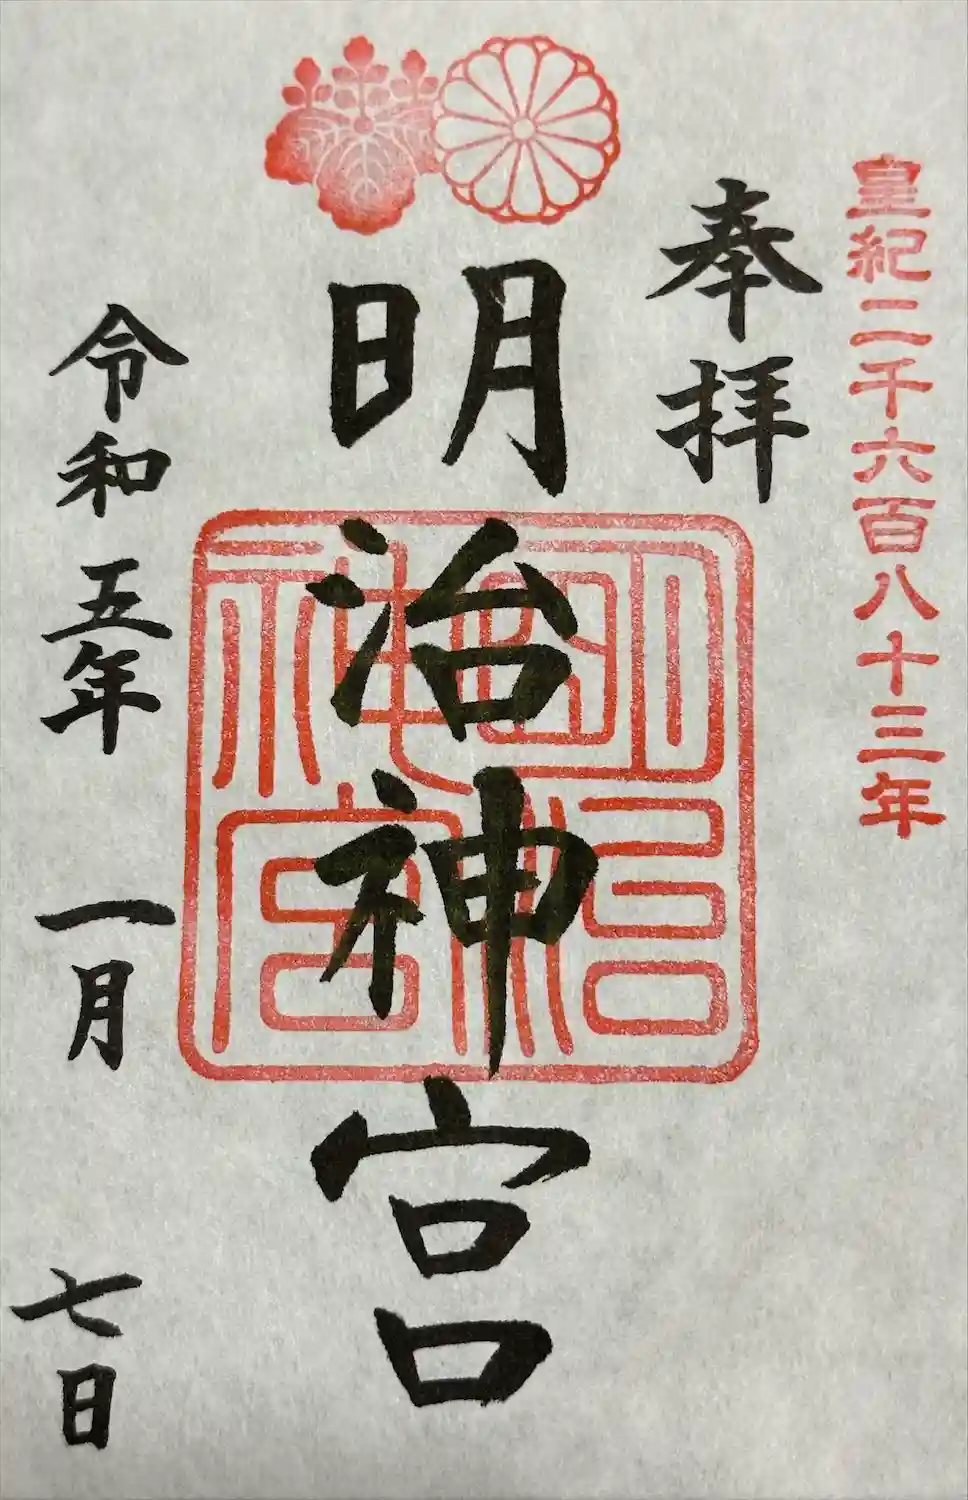 皇紀二千六百八十三年
奉拝
明治神宮
明治神宮
令和五年 一月 七日